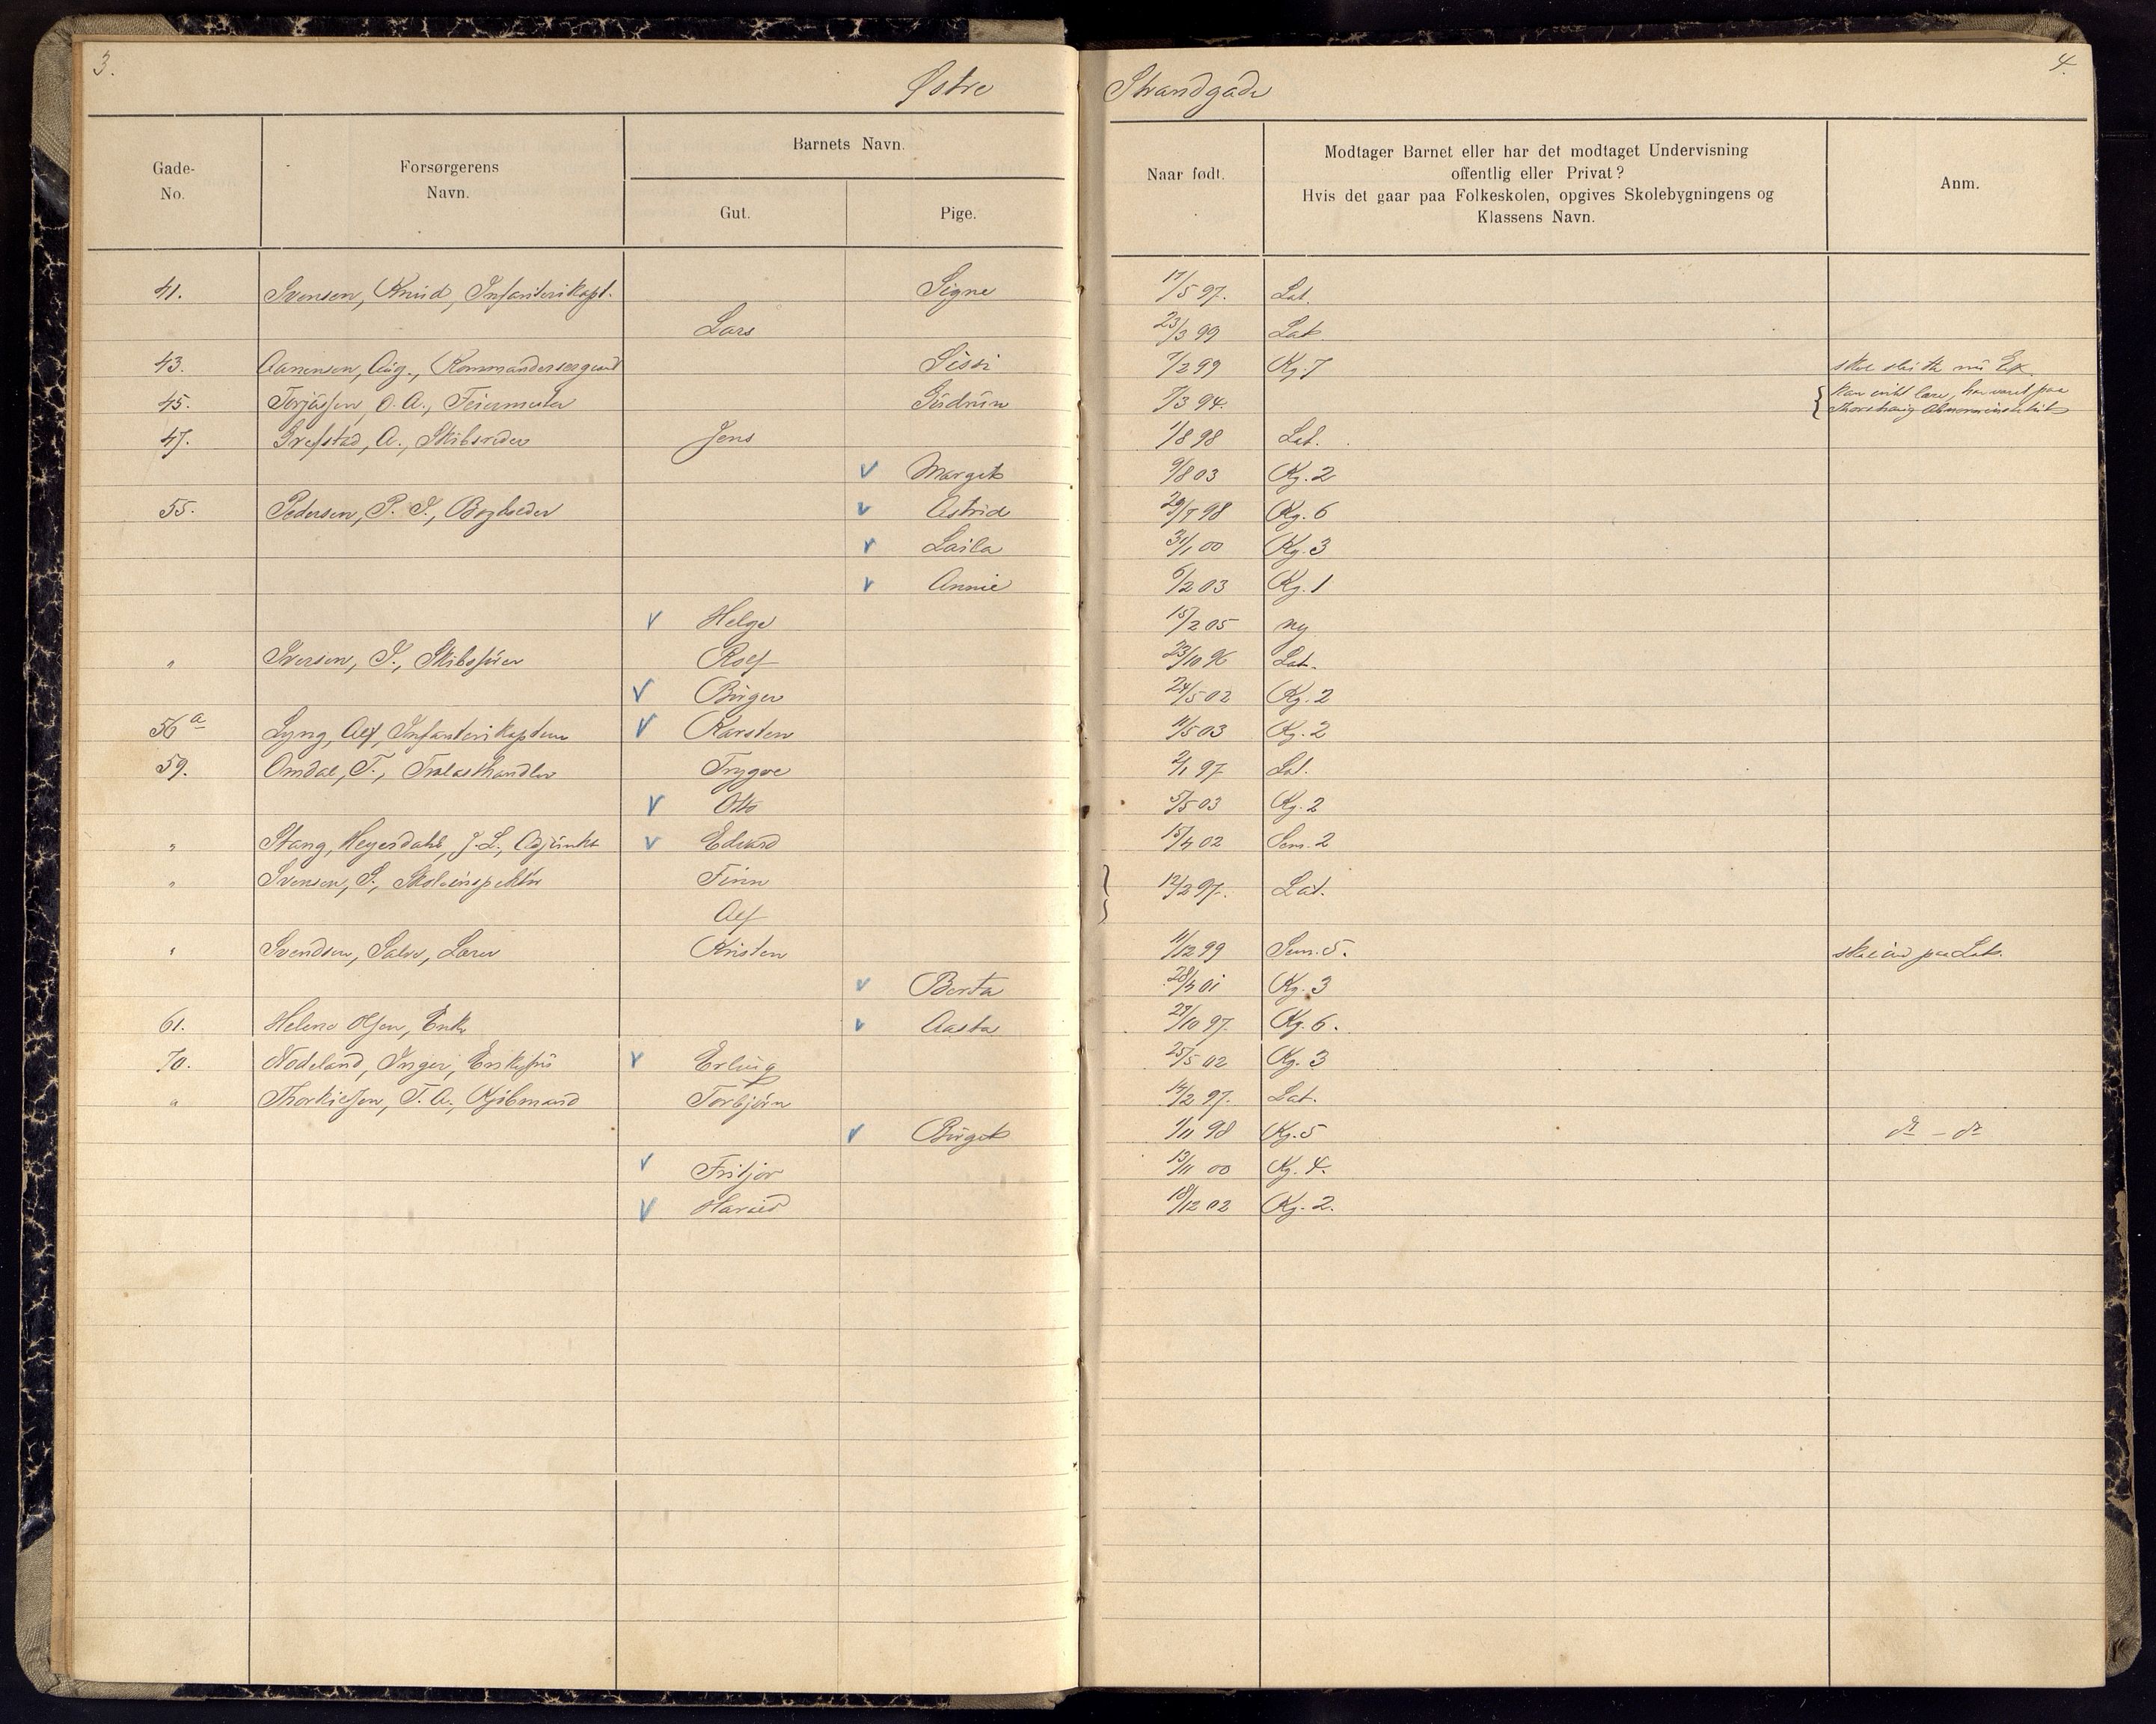 3.
Østre
Strandgade
4.
Gade-
No.
Forsørgerens
Navn.
Barnets Navn.
Gut.
Pige.
Naar født.
Modtager Barnet eller har det modtaget Undervisning
offentlig eller Privat?
Hvis det gaar paa Folkeskolen, opgives Skolebygningens og
Klassens Navn.
Anm.
41. Svensen, Knud, Infanterikapt. Signe 17/5 97. Lat.
Lars 23/3 99 Lat.
43. Aanensen, Aug., Kommandersergeant Sissi 7/2 99 Kg. 7
45. Torjussen, O. A., Feiermester Gudrun 7/3 94. { kan ikke lære, har været paa
Thorshaug Abnorminstitut
47. Grefstad, A., Skibsreder Jens 1/8 98 Lat.
V Margit 9/8 03 Kg. 2
55. Pedersen, P. I., V Astrid 29/7 98 Kg. 6
V Laila 31/1 00 Kg. 3
V Annie 6/2 03 Kg. 1
V Helge 15/2 05 ny
" Iversen, I., Skibsfører Rolf 23/10 96 Lat.
V Birger 24/5 02 Kg. 2
56 a Lyng, Alf, Infanterikaptein V Karsten 11/5 03 Kg. 2
59. Omdal, T., Trælasthandler Trygve 2/1 97 Lat.
V Otto 5/5 03 Kg. 2
" Stang, Heyerdahl, J. L., Adjunkt V Edvard 15/4 02 Sem. 2
" Svensen, S., Skoleinspektør Finn } 12/2 97. Lat.
Alf
" Svendsen, Salve, Lærer Kristen 11/12 99 Sem. 5. skal ind paa Lat.
V Berta 28/4 01 Kg. 3
61. Helene Olsen, Enke V Aasta 27/10 97 Kg. 6.
70. Nodeland, Inger, Enkefru V Erling 25/5 02 Kg. 3
" Thorkielsen, T. A., Kjøbmand Torbjørn 14/2 97. Lat.
V Birgit 1/11 98 Kg. 5 do - do
V Fritjov 13/11 00 Kg. 4.
V Harald 18/12 02 Kg. 2.